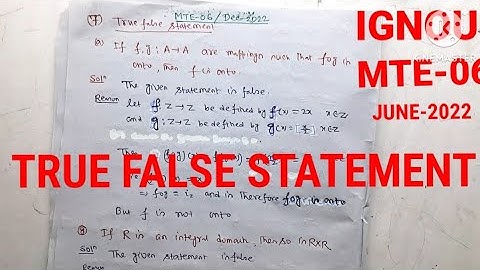 MTE-06/Dec 2022
(7) True false statement
(a) If f, g: A→A are mappings such that fog is
onto, then f is onto.
Solⁿ The given statement is false.
Reason let f: Z→Z be defined by f(x) = 2x x∈Z
and g: Z→Z be defined by g(x) = [x/2] x∈Z
(fog)(x)
⇒ fog = i_z and is therefore fog is onto
But f is not onto
If R is an integral domain, then so is R×R
Solⁿ The given statement is false
Reason
IGNOU
MTE-06
JUNE-2022
TRUE FALSE STATEMENT
KINEMASTER